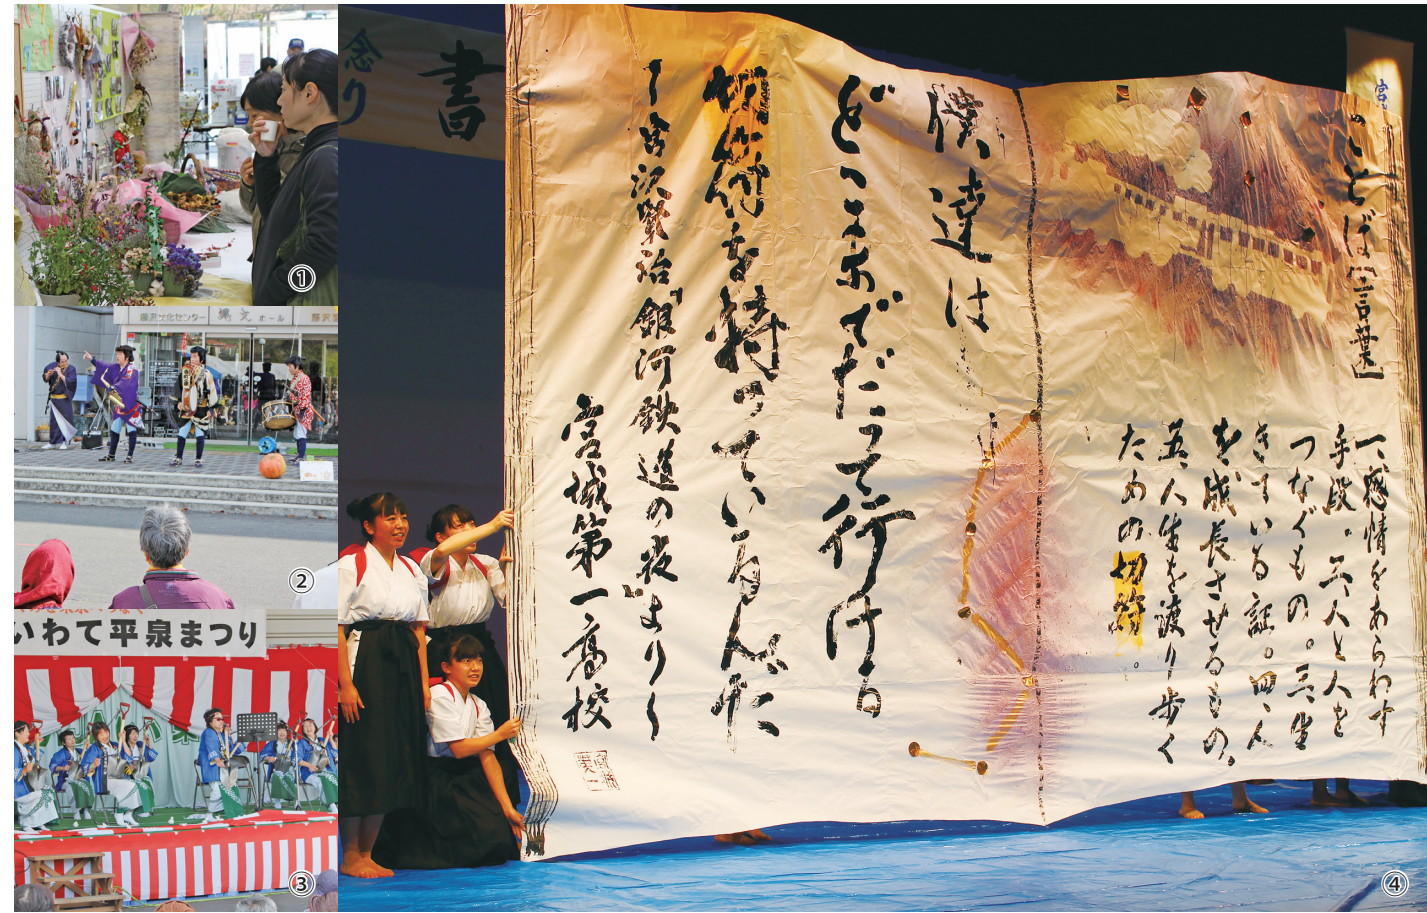 ①
藤沢文化センター 縄文ホール
②
いわて平泉まつり
③
書
ことば【言葉】
一、感情をあらわす
手段。二、人と人を
つなぐもの。三、生
きている証。四、人
を成長させるもの。
五、人生を渡り歩く
ための切符。
僕達は
どこまでだって行ける
切符を持っているんだ
〜宮沢賢治『銀河鉄道の夜』より〜
宮城第一高校
④